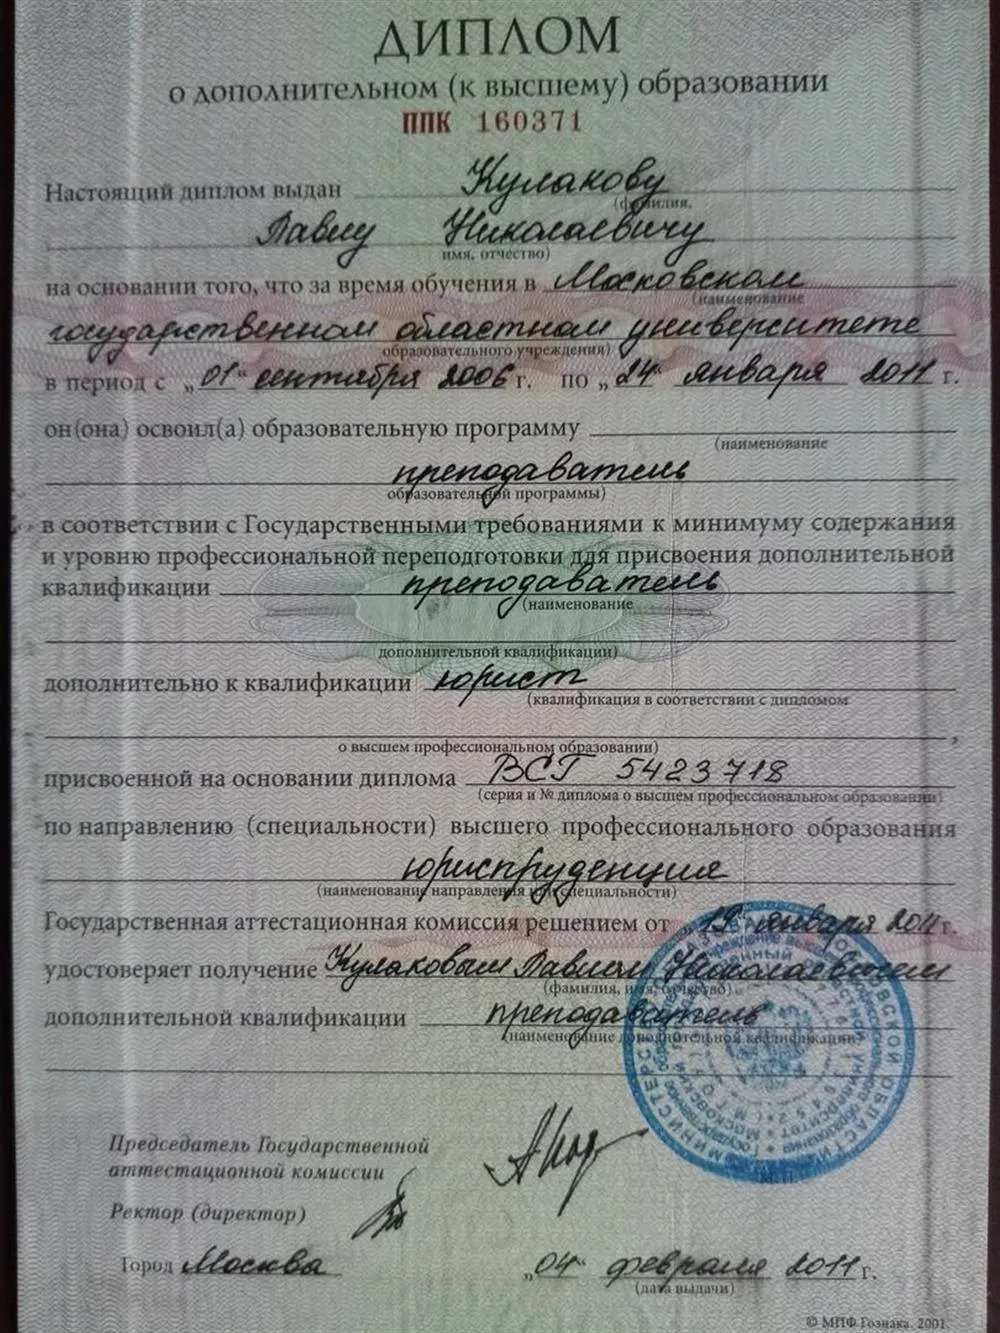 ДИПЛОМ
о дополнительном (к высшему) образовании
ППК 160371
Настоящий диплом выдан Кулакову
(фамилия,
Павлу Николаевичу
имя, отчество)
на основании того, что за время обучения в Московском
(наименование
государственном областном университете
образовательного учреждения)
в период с „01“ сентября 2006 г. по „24“ января 2011 г.
он(она) освоил(а) образовательную программу
(наименование
преподаватель
образовательной программы)
в соответствии с Государственными требованиями к минимуму содержания
и уровню профессиональной переподготовки для присвоения дополнительной
квалификации преподаватель
(наименование
дополнительной квалификации)
дополнительно к квалификации юрист
(квалификация в соответствии с дипломом
о высшем профессиональном образовании)
присвоенной на основании диплома ВСГ 5423718
(серия и № диплома о высшем профессиональном образовании)
по направлению (специальности) высшего профессионального образования
юриспруденция
(наименование направления или специальности)
Государственная аттестационная комиссия решением от „19“ января 2011 г.
удостоверяет получение Кулаковым Павлом Николаевичем
(фамилия, имя, отчество)
дополнительной квалификации преподаватель
(наименование дополнительной квалификации)
Председатель Государственной
аттестационной комиссии
М.П.
Ректор (директор)
Город Москва „04“ февраля 2011 г.
(дата выдачи)
© МПФ Гознака. 2001.